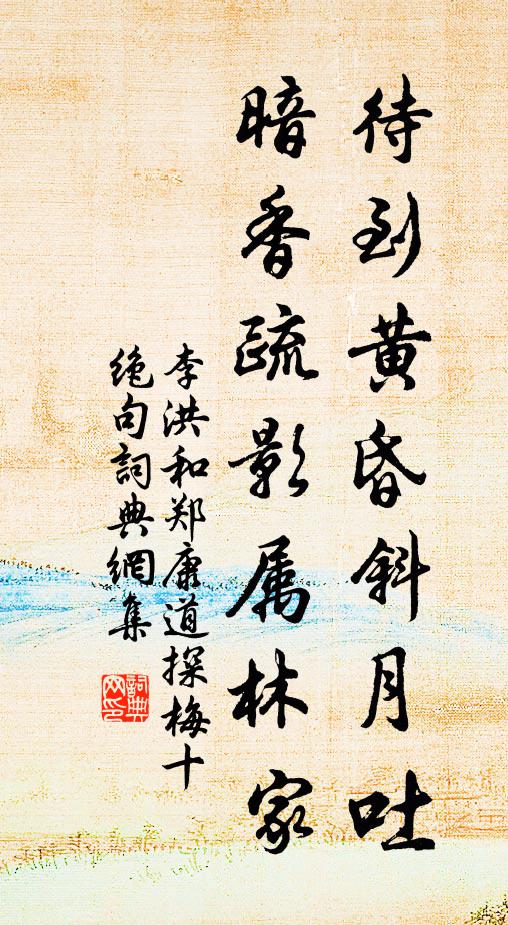 待到黄昏斜月吐
暗香疏影属林家
李洪和郑康道探梅十
绝句詞典網集
詞典
网印